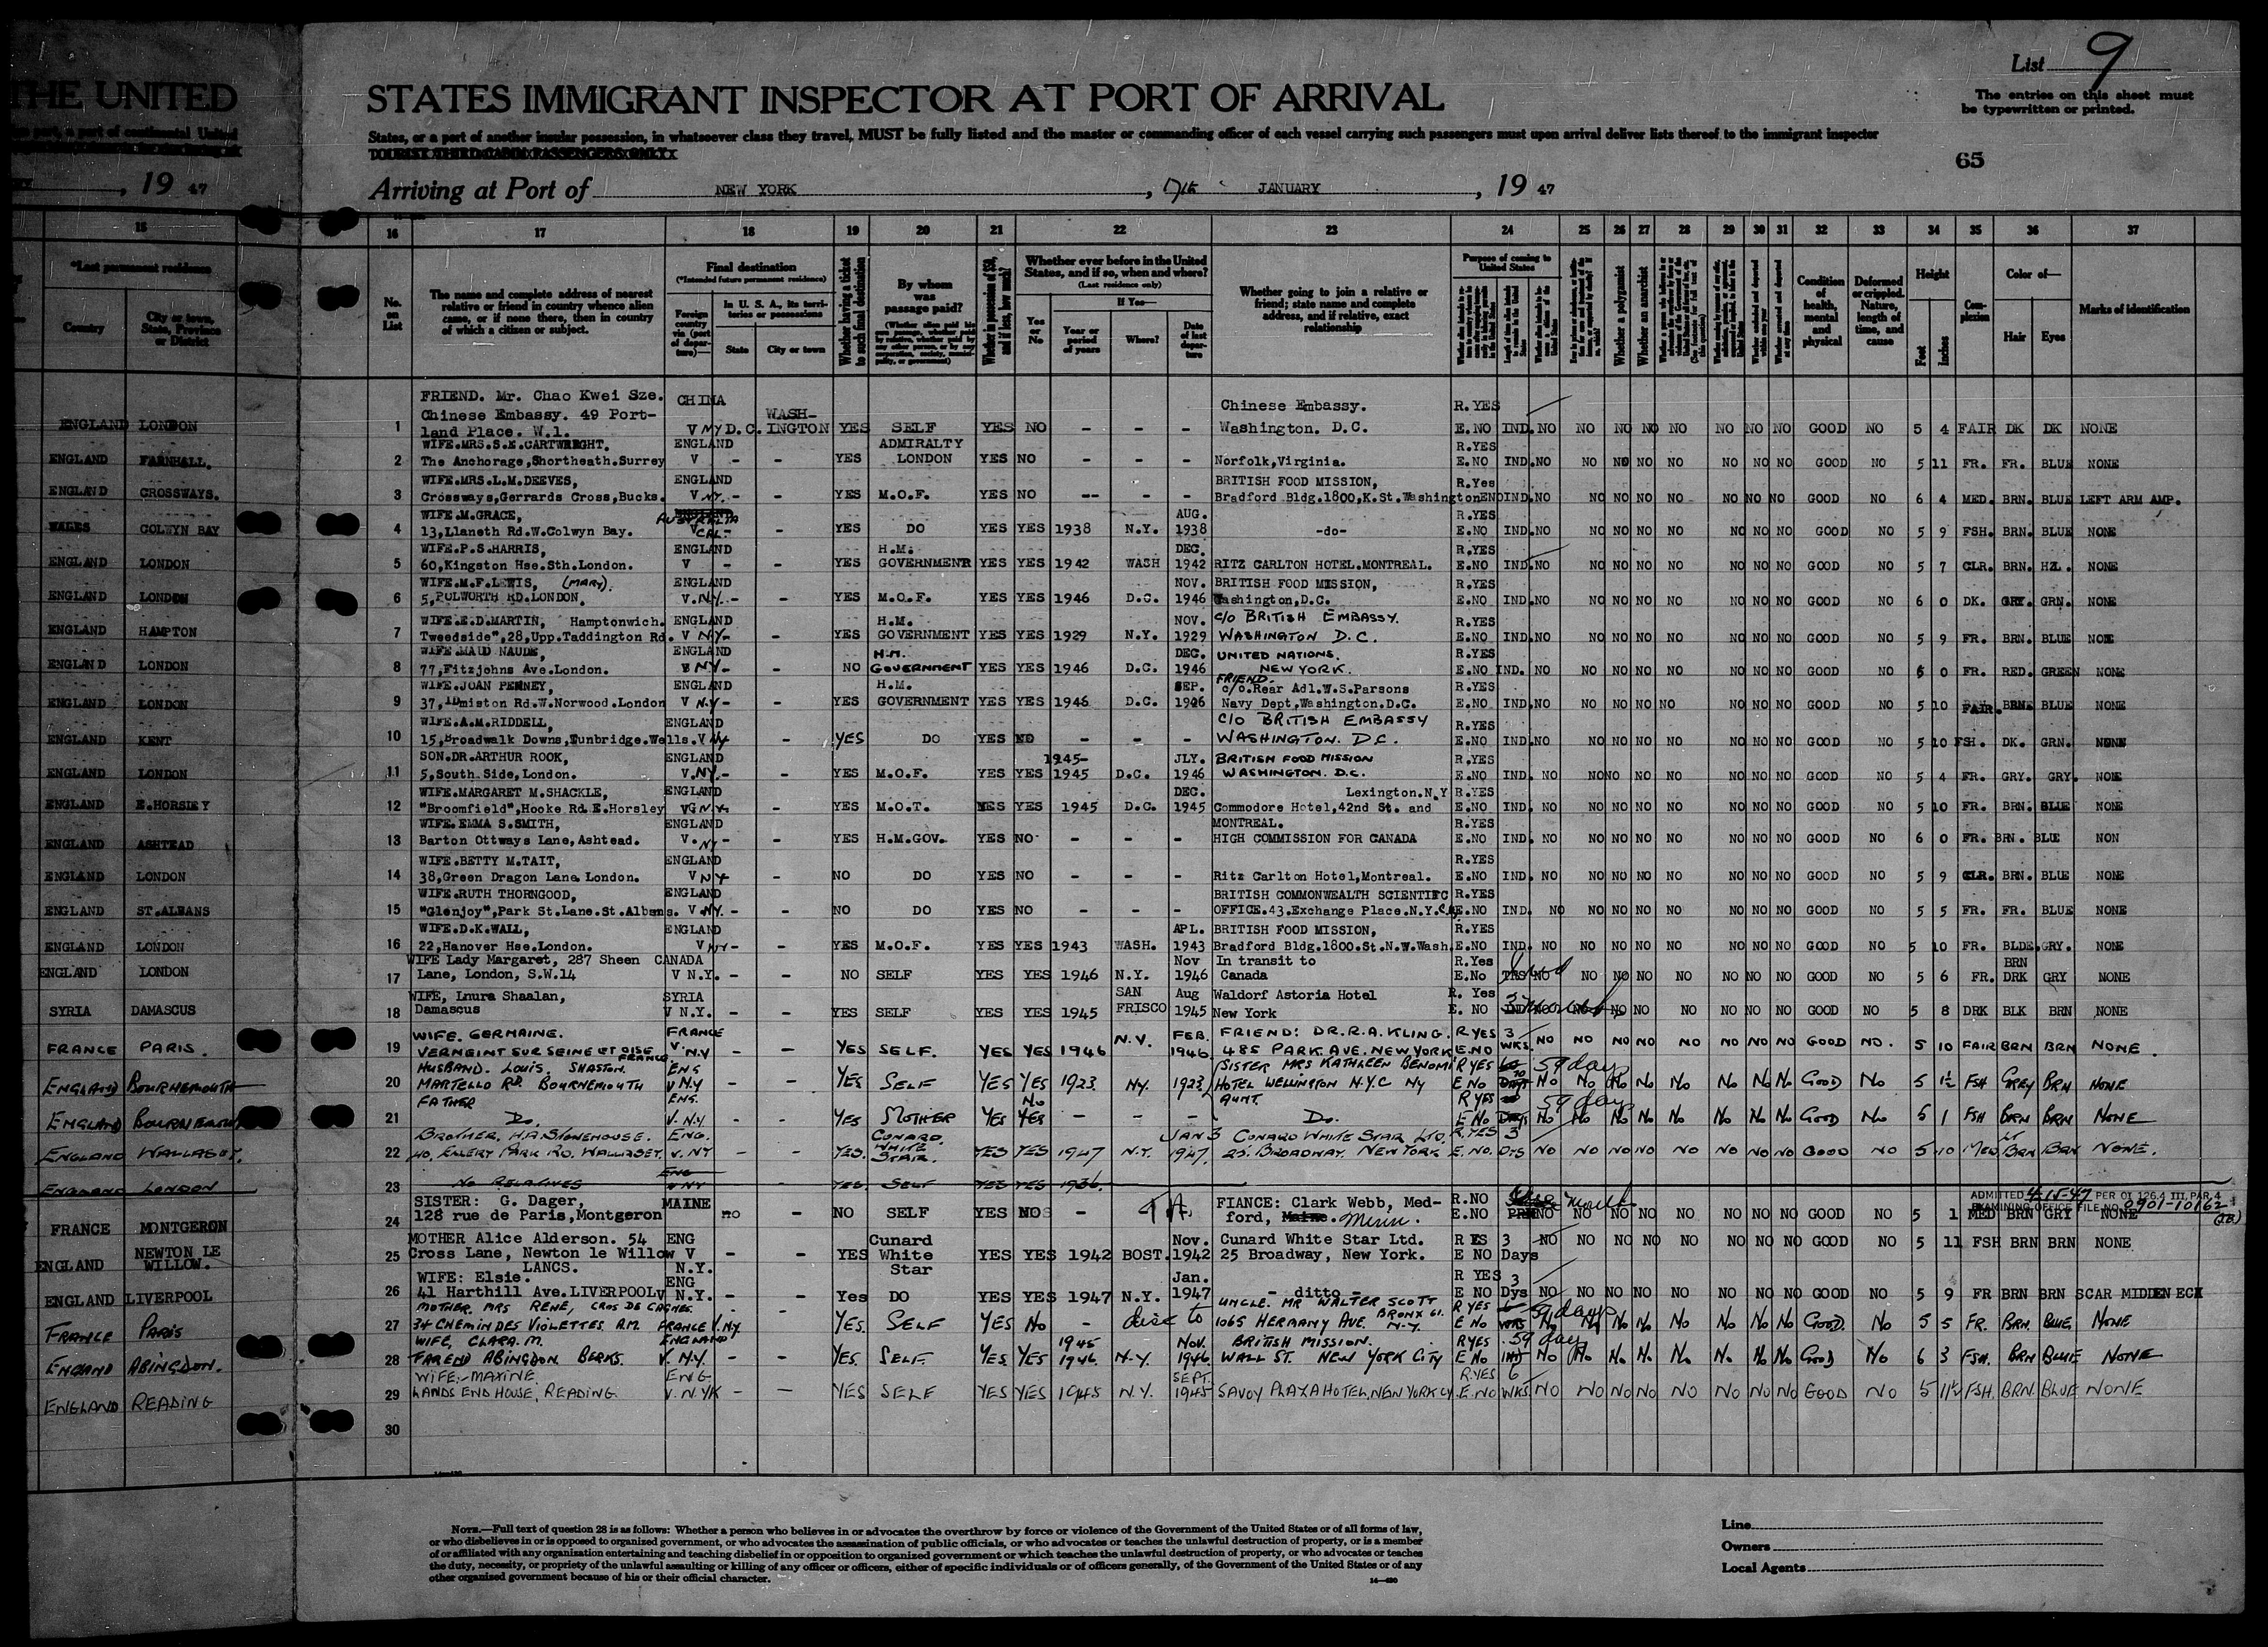 List 9
The entries on this sheet must
be typewritten or printed.
THE UNITED
STATES IMMIGRANT INSPECTOR AT PORT OF ARRIVAL
States, or a part of another insular possession, in whatsoever class they travel, MUST be fully listed and the master or commanding officer of each vessel carrying such passengers must upon arrival deliver lists thereof to the immigrant inspector
65
, 19 47
Arriving at Port of NEW YORK , JANUARY , 19 47
15 16 17 18 19 20 21 22 23 24 25 26 27 28 29 30 31 32 33 34 35 36 37
*Last permanent residence
Country
City or town, State, Province or District
No. on List
The name and complete address of nearest relative or friend in country whence alien came, or if none there, then in country of which a citizen or subject.
Final destination
(*Intended future permanent residence)
Foreign country via (port of departure)—
In U. S. A., its territories or possessions
State
City or town
Whether having a ticket to such final destination
By whom was passage paid?
Whether in possession of $50, and if less, how much?
Whether ever before in the United States, and if so, when and where?
(Last residence only)
Yes or No
If Yes—
Year or period of years
Where?
Date of last departure
Whether going to join a relative or friend; state name and complete address, and if relative, exact relationship
Purpose of coming to United States
Whether a polygamist
Whether an anarchist
Condition of health, mental and physical
Deformed or crippled. Nature, length of time, and cause
Height
Feet
Inches
Complexion
Color of—
Hair
Eyes
Marks of identification
FRIEND. Mr. Chao Kwei Sze. CHINA
Chinese Embassy. 49 Port- WASH- Chinese Embassy. R.YES
ENGLAND LONDON 1 land Place. W.1. V NY D.C. INGTON YES SELF YES NO - - - Washington. D.C. E.NO IND. NO NO NO NO NO NO NO NO GOOD NO 5 4 FAIR DK DK NONE
WIFE.MRS.S.E.CARTWRIGHT. ENGLAND ADMIRALTY R.YES
ENGLAND FARNHALL. 2 The Anchorage,Shortheath.Surrey V - - YES LONDON YES NO - - - Norfolk,Virginia. E.NO IND.NO NO NO NO NO NO NO NO GOOD NO 5 11 FR. FR. BLUE NONE
WIFE.MRS.L.M.DEEVES, ENGLAND BRITISH FOOD MISSION, R.Yes
ENGLAND CROSSWAYS. 3 Crossways,Gerrards Cross,Bucks. V NY. - - YES M.O.F. YES NO -- - - Bradford Bldg.1800,K.St.Washington E NO IND.NO NO NO NO NO NO NO NO GOOD NO 6 4 MED. BRN. BLUE LEFT ARM AMP.
WIFE.M.GRACE, ENGLAND AUSTRALIA AUG. R.YES
WALES COLWYN BAY 4 13,Llaneth Rd.W.Colwyn Bay. V CAL. - - YES DO YES YES 1938 N.Y. 1938 -do- E.NO IND.NO NO NO NO NO NO NO NO GOOD NO 5 9 FSH. BRN. BLUE NONE
WIFE.P.S.HARRIS, ENGLAND H.M. DEC. R.YES
ENGLAND LONDON 5 60,Kingston Hse.Sth.London. V - - YES GOVERNMENT YES YES 1942 WASH 1942 RITZ CARLTON HOTEL.MONTREAL. E.NO IND.NO NO NO NO NO NO NO NO GOOD NO 5 7 CLR. BRN. HZL. NONE
WIFE.M.F.LEWIS, (MARY). ENGLAND NOV. BRITISH FOOD MISSION, R.YES
ENGLAND LONDON 6 5,POLWORTH RD.LONDON. V.NY. - - YES M.O.F. YES YES 1946 D.C. 1946 Washington,D.C. E.NO IND.NO NO NO NO NO NO NO NO GOOD NO 6 0 DK. GRY. GRN. NONE
WIFE.E.D.MARTIN, Hamptonwich. ENGLAND H.M. NOV. C/O BRITISH EMBASSY. R.YES
ENGLAND HAMPTON 7 Tweedside",28,Upp.Taddington Rd. V NY- - YES GOVERNMENT YES YES 1929 N.Y. 1929 WASHINGTON D.C. E.NO IND.NO NO NO NO NO NO NO NO GOOD NO 5 9 FR. BRN. BLUE NONE
WIFE.MAUD NAUDE, ENGLAND H.M. DEC. UNITED NATIONS. R.YES
ENGLAND LONDON 8 77,Fitzjohns Ave.London. V NY- - NO GOVERNMENT YES YES 1946 D.C. 1946 NEW YORK. E.NO IND. NO NO NO NO NO NO NO NO GOOD NO 6 0 FR. RED. GREEN NONE
FRIEND.
WIFE.JOAN PENNEY, ENGLAND H.M. SEP. c/o.Rear Adl.W.S.Parsons R.YES
ENGLAND LONDON 9 37,Idmiston Rd.W.Norwood.London V N.Y- - YES GOVERNMENT YES YES 1946 D.C. 1946 Navy Dept,Washington.D.C. E.NO IND.NO NO NO NO NO NO NO NO GOOD NO 5 10 FAIR. BRNE BLUE NONE
WIFE.A.M.RIDDELL, ENGLAND C/O BRITISH EMBASSY R.YES
ENGLAND KENT 10 15,Broadwalk Downs,Tunbridge.Wells. V NY - YES DO YES NO - - - WASHINGTON. D.C. E.NO IND.NO NO NO NO NO NO NO NO GOOD NO 5 10 FSH. DK. GRN. NONE
SON.DR.ARTHUR ROOK, ENGLAND 1945- JLY. BRITISH FOOD MISSION R.YES
ENGLAND LONDON 11 5,South Side,London. V.NY.- - YES M.O.F. YES YES 1945 D.C. 1946 WASHINGTON. D.C. E.NO IND. NO NO NO NO NO NO NO NO GOOD NO 5 4 FR. GRY. GRY. NONE
WIFE.MARGARET M.SHACKLE, ENGLAND DEC. Lexington.N.Y R.YES
ENGLAND E.HORSLEY 12 "Broomfield",Hooke Rd.E.Horsley V N.Y- - YES M.O.T. YES YES 1945 D.C. 1945 Commodore Hotel,42nd St. and E.NO IND. NO NO NO NO NO NO NO NO GOOD NO 5 10 FR. BRN. BLUE NONE
WIFE.EMMA S.SMITH, ENGLAND MONTREAL. R.YES
ENGLAND ASHTEAD 13 Barton Ottways Lane,Ashtead. V. NY - - YES H.M.GOV. YES NO - - - HIGH COMMISSION FOR CANADA E.NO IND. NO NO NO NO NO NO NO NO GOOD NO 6 0 FR. BRN. BLUE NON
WIFE.BETTY M.TAIT, ENGLAND R.YES
ENGLAND LONDON 14 38,Green Dragon Lane London. V NY - NO DO YES NO - - - Ritz Carlton Hotel,Montreal. E.NO IND. NO NO NO NO NO NO NO NO GOOD NO 5 9 CLR. BRN. BLUE NONE
WIFE.RUTH THORNGOOD, ENGLAND BRITISH COMMONWEALTH SCIENTIFC R.YES
ENGLAND ST.ALBANS 15 "Glenjoy",Park St.Lane.St.Albans. V.NY. - - NO DO YES NO - - - OFFICE.43.Exchange Place.N.Y. E.NO IND. NO NO NO NO NO NO NO NO GOOD NO 5 5 FR. FR. BLUE NONE
WIFE.D.K.WALL, ENGLAND APL. BRITISH FOOD MISSION, R.YES
ENGLAND LONDON 16 22,Hanover Hse.London. V NY- - YES M.O.F. YES YES 1943 WASH. 1943 Bradford Bldg.1800.St.N.W.Wash. E.NO IND. NO NO NO NO NO NO NO NO GOOD NO 5 10 FR. BLDE. GRY. NONE
WIFE Lady Margaret, 287 Sheen CANADA Nov In transit to R.Yes BRN
ENGLAND LONDON 17 Lane, London, S.W.14 V N.Y. - - NO SELF YES YES 1946 N.Y. 1946 Canada E.No NO NO NO NO NO NO NO NO GOOD NO 5 6 FR. DRK GRY NONE
WIFE, Lnura Shaalan, SYRIA SAN Aug Waldorf Astoria Hotel R. Yes 3
SYRIA DAMASCUS 18 Damascus V N.Y. - - YES SELF YES YES 1945 FRISCO 1945 New York E. NO IND NO NO NO NO NO NO NO GOOD NO 5 8 DRK BLK BRN NONE
WIFE. GERMAINE. FRANCE FEB. FRIEND: DR.R.A.KLING. R YES 3
FRANCE PARIS. 19 VERNEINT SUR SEINE ET OISE FRANCE. V. N.Y - - YES SELF. YES YES 1946 N.Y. 1946. 485 PARK. AVE. NEW YORK E.NO WKS. NO NO NO NO NO NO NO NO GOOD NO. 5 10 FAIR BRN BRN NONE.
HUSBAND. LOUIS. SHASTON. ENG (SISTER MRS KATHLEEN BENOMI R YES 59 days
ENGLAND BOURNEMOUTH 20 MARTELLO RD. BOURNEMOUTH V N.Y - - YES SELF YES YES 1923 NY. 1923 HOTEL WELLINGTON N.Y.C NY E NO No No No No No No No No Good No 5 1½ FSH GREY BRN NONE
FATHER ENG. No AUNT. R YES 59 days
ENGLAND BOURNEMOUTH 21 Do. V. N.Y. - - YES MOTHER YES YES - - - Do. E No No No No No No No No No Good No 5 1 FSH BRN BRN NONE
BROTHER. H.A. STONEHOUSE. ENG. CUNARD JAN 3 CUNARD WHITE STAR LTD. R.YES 3
ENGLAND WALLASEY. 22 40, EMERY PARK RD. WALLASEY. V. NY - - YES. WHITE STAR. YES YES 1947 N.Y. 1947. 25. BROADWAY. NEW YORK E. NO. DYS NO NO NO NO NO NO NO NO GOOD NO 5 10 MED LT BRN BRN NONE.
ENGLAND LONDON 23 NO RELATIVES ENG V NY YES. SELF YES YES 1936.
SISTER: G. Dager, MAINE FIANCE: Clark Webb, Med- R.NO Month ADMITTED 4-15-47 PER OI 126.4 III PAR. 4
FRANCE MONTGERON 24 128 rue de Paris,Montgeron no - NO SELF YES NO - ford, Maine. Minn. E.NO NO NO NO NO NO NO NO NO GOOD NO 5 1 MED BRN GRY NONE
EXAMINING OFFICE FILE NO. 0901-10162
MOTHER Alice Alderson. 54 ENG Cunard Nov. Cunard White Star Ltd. R ES 3
ENGLAND NEWTON LE WILLOW. 25 Cross Lane, Newton le Willow V - - YES White YES YES 1942 BOST. 1942 25 Broadway, New York. E NO Days NO NO NO NO NO NO NO NO GOOD NO 5 11 FSH BRN BRN NONE
LANCS. N.Y. Star
WIFE: Elsie. ENG Jan. R YES 3
ENGLAND LIVERPOOL 26 41 Harthill Ave.LIVERPOOL V N.Y. - - Yes DO YES YES 1947 N.Y. 1947 - ditto - E NO Dys NO NO NO NO NO NO NO NO GOOD NO 5 9 FR BRN BRN SCAR MIDDEN ECK
MOTHER. MRS RENE, CROS DE CAGNES. UNCLE. MR WALTER SCOTT R YES 59 days
FRANCE PARIS 27 34 CHEMIN DES VIOLETTES. A.M. FRANCE V.N.Y. - YES. SELF YES No - 1065 HERMANY AVE. BRONX 61. N.Y. E No No No No No No No No No Good. No 5 5 FR. BRN. BLUE. NONE
WIFE, CLARA. M. ENGLAND 1945 NOV. BRITISH MISSION. R YES 59 day
ENGLAND ABINGDON. 28 FAREND ABINGDON BERKS. V. N.Y. - - YES. SELF. YES YES 1946. N-Y. 1946. WALL ST. NEW YORK CITY E No IND No No No No No No No No Good No 6 3 FSH. BRN BLUE NONE
WIFE:- MAXINE. ENG SEPT. R.YES 6
ENGLAND READING 29 LANDS END HOUSE, READING V. N.YK - - YES SELF YES YES 1945 N.Y. 1945 SAVOY PLAZA HOTEL, NEW YORK CY. E.NO WKS. NO NO NO NO NO NO NO NO GOOD NO 5 11½ FSH. BRN. BLUE NONE
30
NOTE.—Full text of question 28 is as follows: Whether a person who believes in or advocates the overthrow by force or violence of the Government of the United States or of all forms of law,
or who disbelieves in or is opposed to organized government, or who advocates the assassination of public officials, or who advocates or teaches the unlawful destruction of property, or is a member
of or affiliated with any organization entertaining and teaching disbelief in or opposition to organized government or which teaches the unlawful destruction of property, or who advocates or teaches
the duty, necessity, or propriety of the unlawful assaulting or killing of any officer or officers, either of specific individuals or of officers generally, of the Government of the United States or of any
other organized government because of his or their official character.
Line
Owners
Local Agents